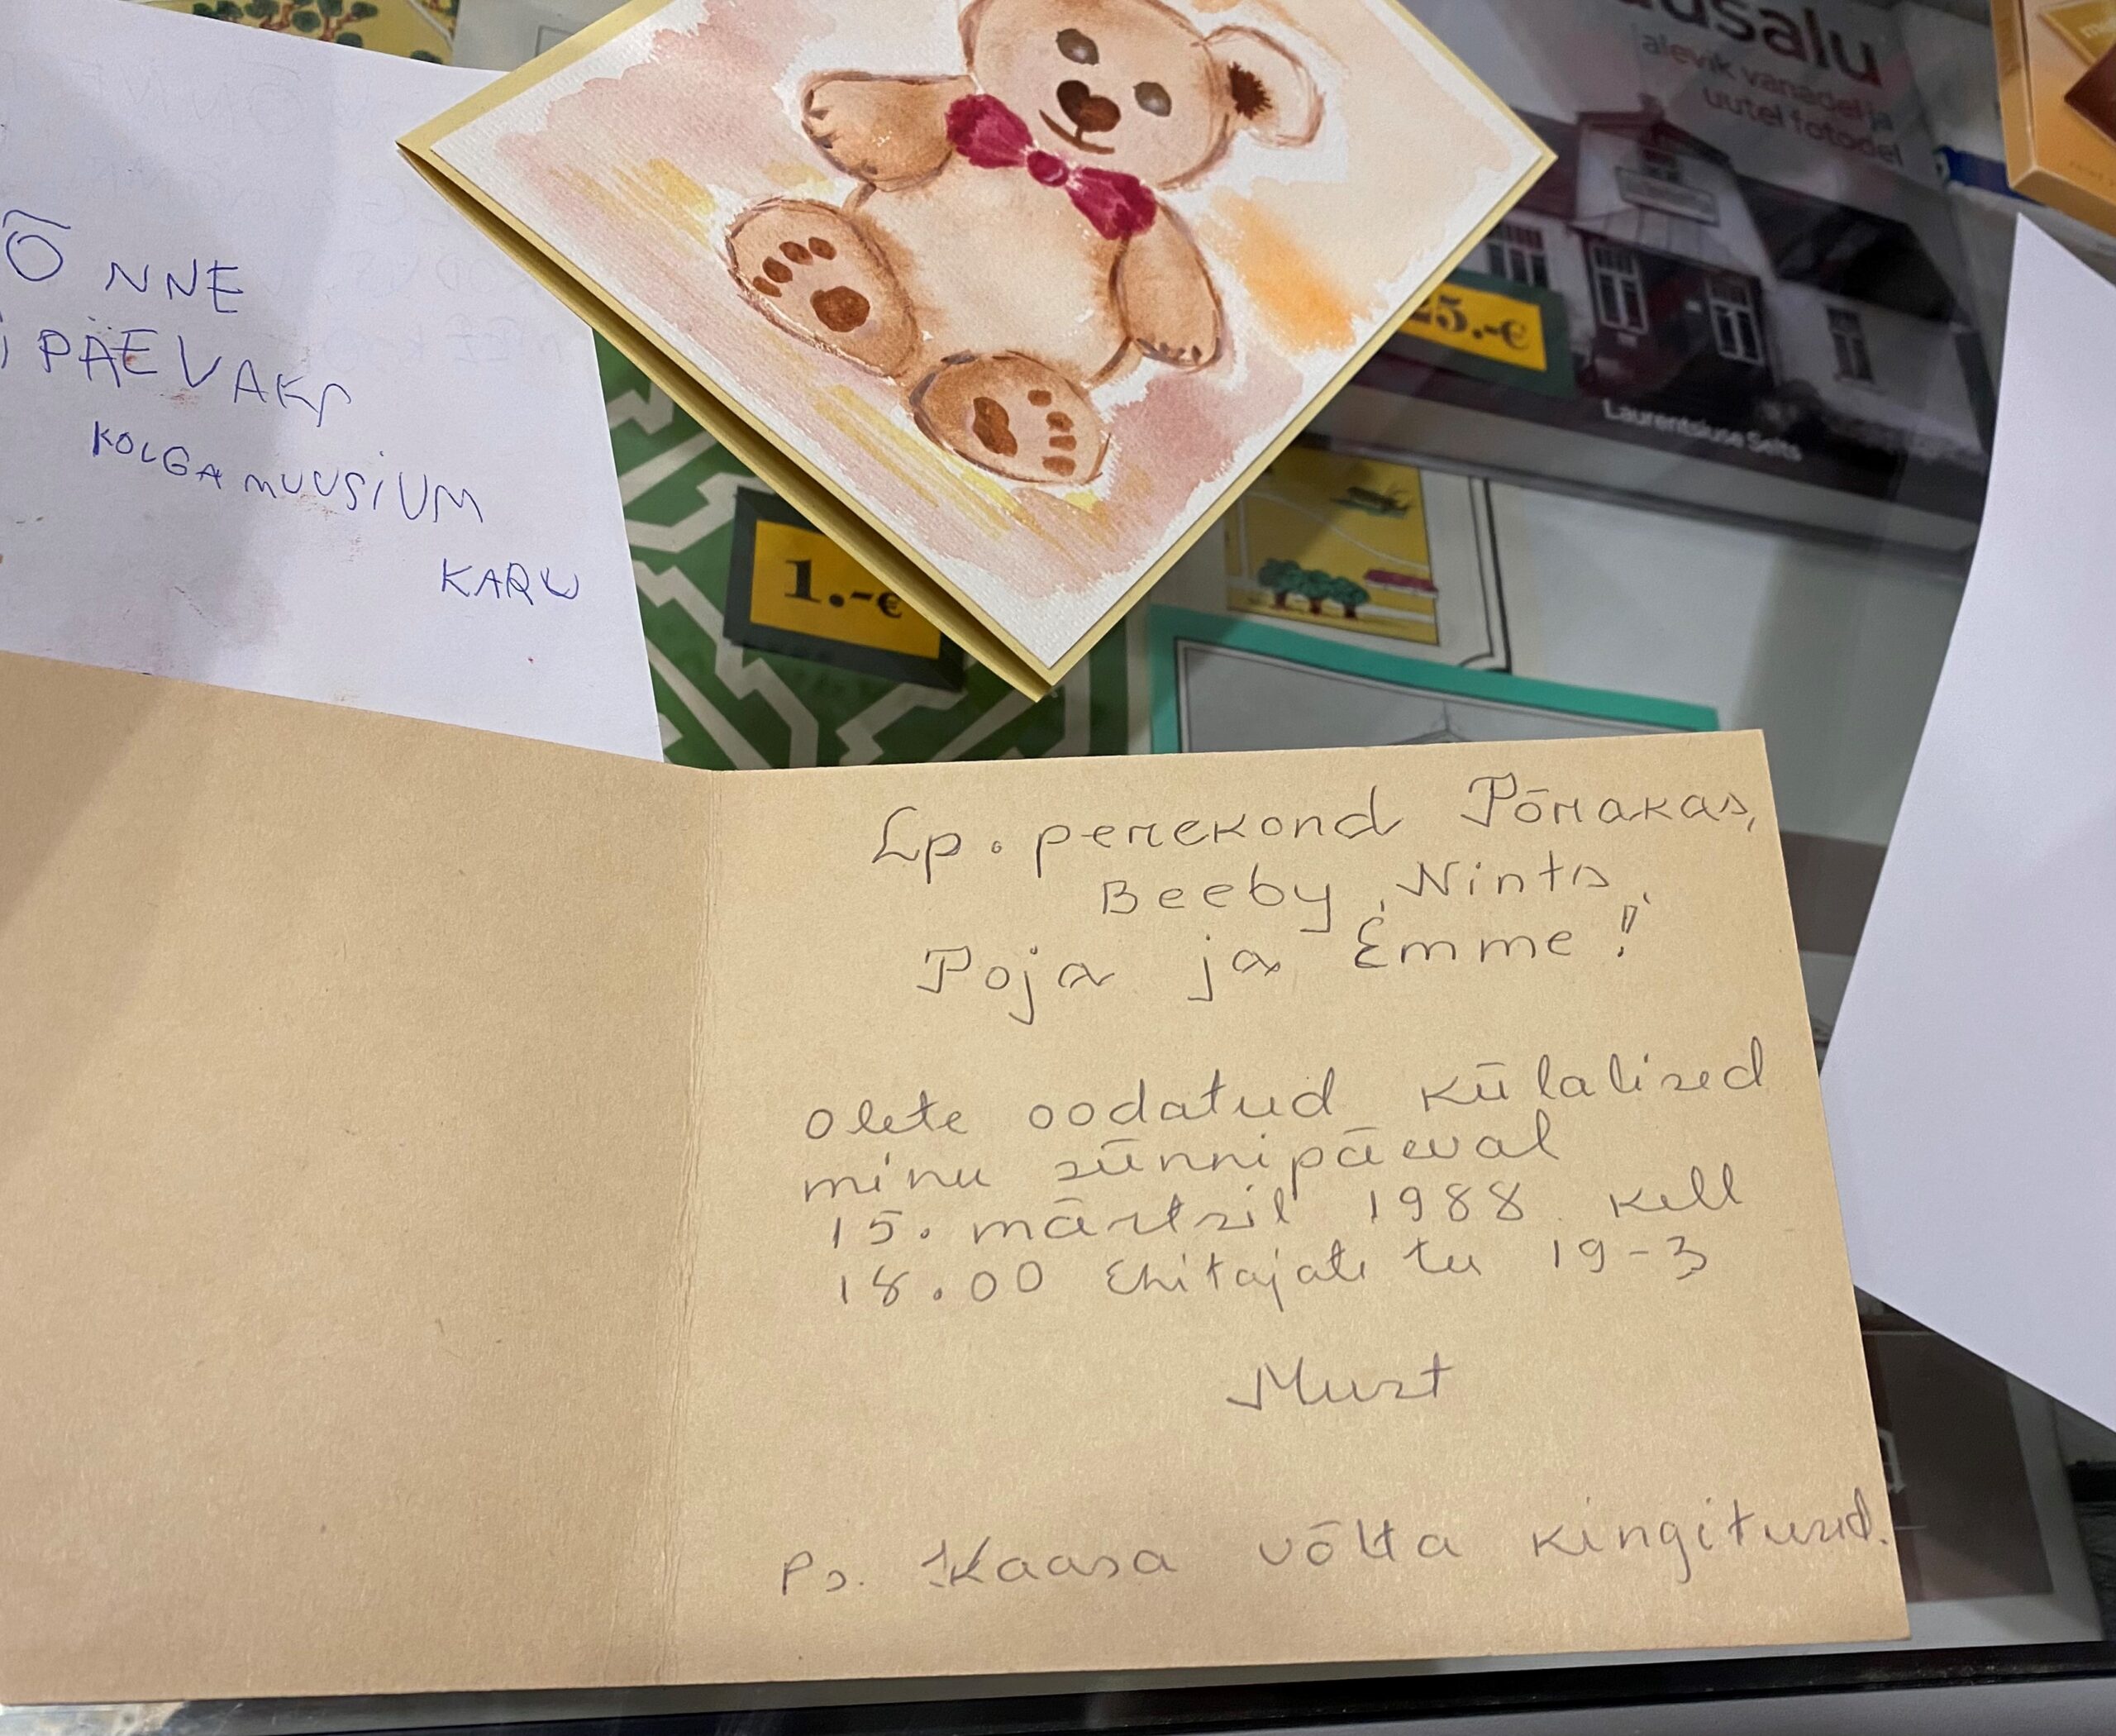 ÕNNE
PÄEVAKS
KOLGA MUUSIUM
KARU
usalu
alevik vanadel ja
uutel fotodel
25.-€
Laurentsiuse Selts
1.-€
Lp. perekond Põrakas,
Beeby, Nints,
Poja ja Emme!
Olete oodatud külalised
minu sünnipäeval
15. märtsil 1988 kell
18.00 Ehitajate tee 19-3
Must
Ps. Kaasa võtta kingitused.